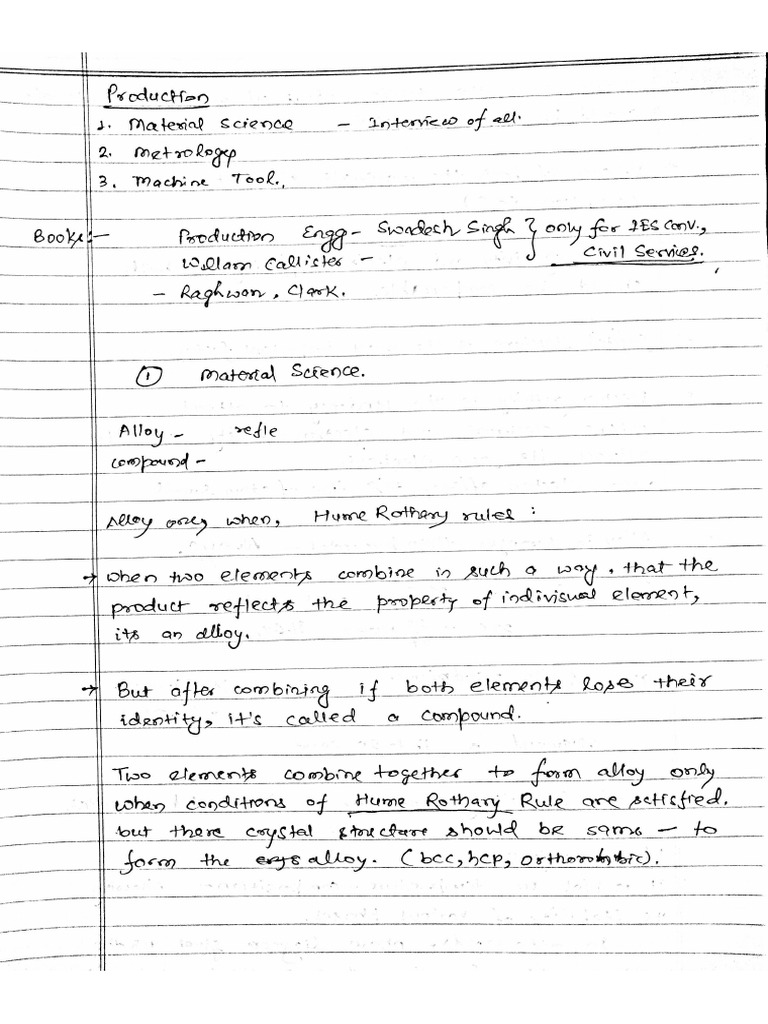 Production
1. Material Science - Interview of all.
2. Metrology
3. Machine Tool.,
Books:- Production Engg - Swadesh Singh } only for IES Conv.,
Willam Callister - Civil Services.
- Raghwan, Clark.
① Material Science.
Alloy - refle
compound -
Alloy when, Hume Rothary rules :
→ when two elements combine in such a way, that the
product reflects the property of indivisual element,
its an alloy.
→ But after combining if both elements lose their
identity, it's called a compound.
Two elements combine together to form alloy only
when conditions of Hume Rothary Rule are satisfied.
but there crystal structure should be same - to
form the alloy. (bcc, hcp, orthorombic).